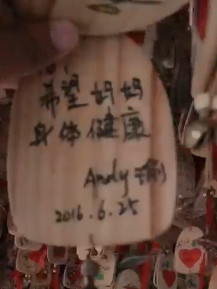 希望妈妈
身体健康
Andy
2016.6.25